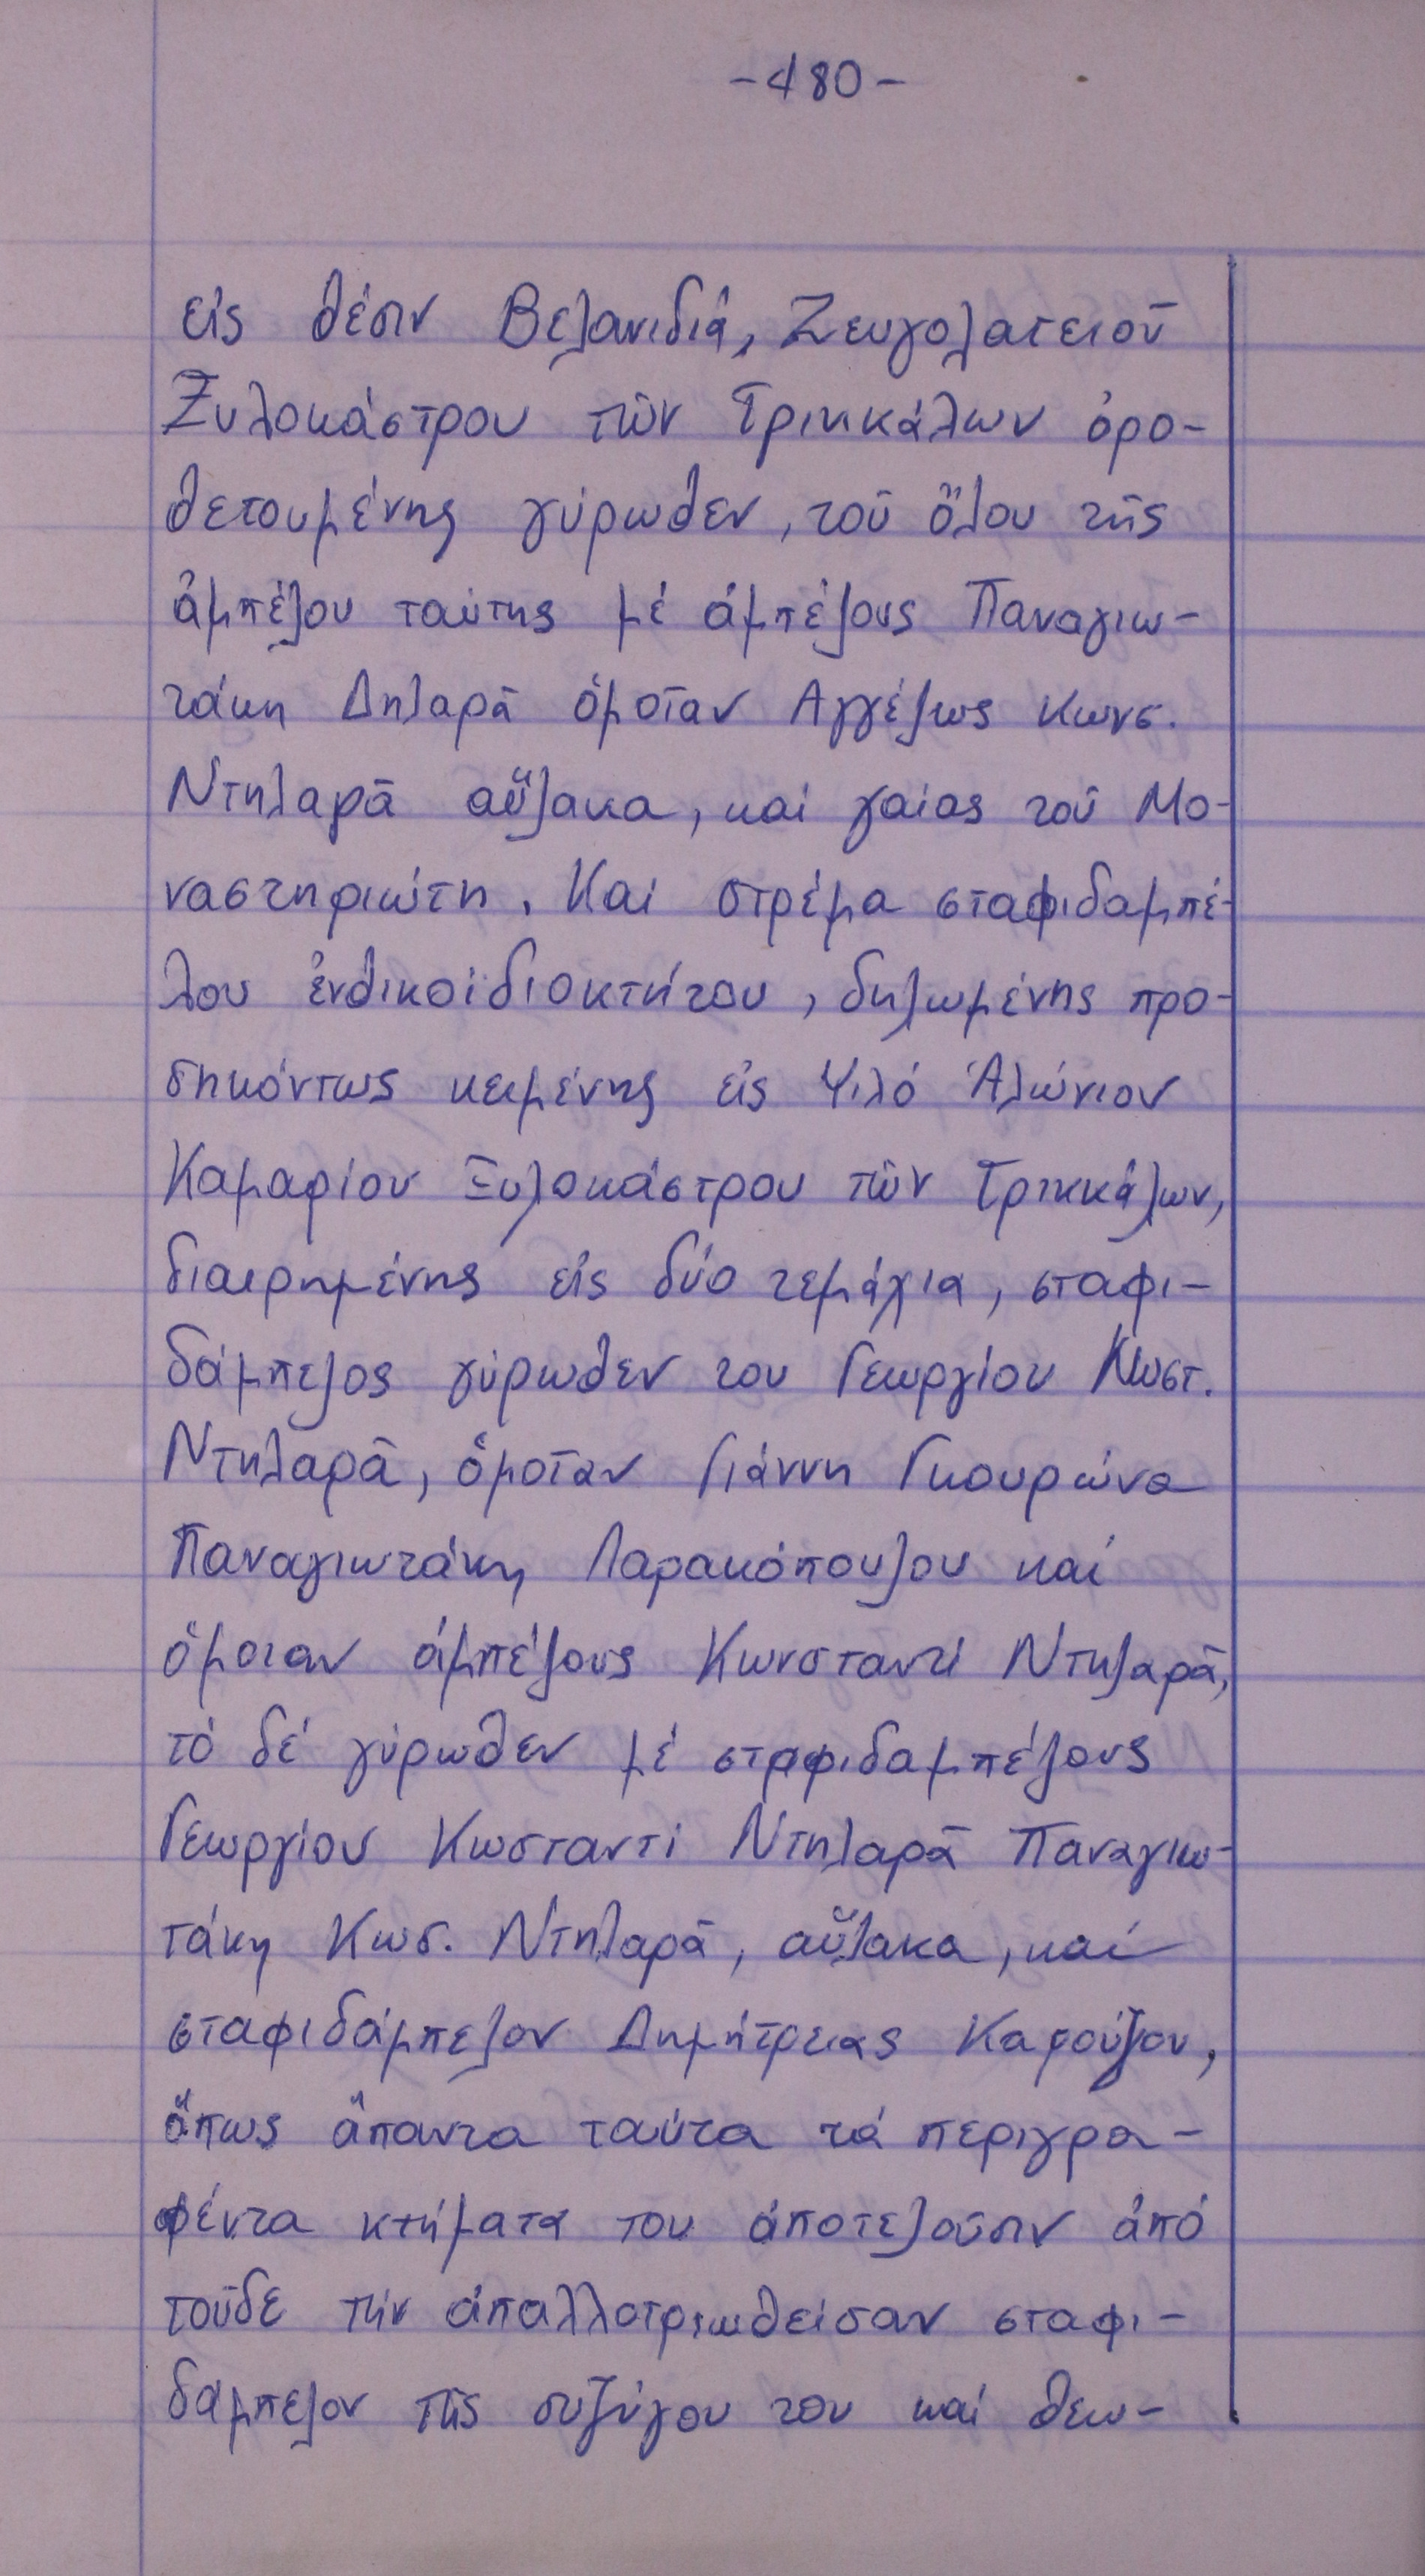 -480-
εἰς θέσιν Βελανιδιά, Ζευγολατειοῦ
Ξυλοκάστρου τῶν Τρικκάλων ὁρο-
θετουμένης γύρωθεν, τοῦ ὅλου τῆς
ἀμπέλου ταύτης μέ ἀμπέλους Παναγιω-
τάκη Δηλαρᾶ ὁμοῖαν Αγγέλως Κωνσ.
Ντηλαρᾶ αὔλακα, καί γαίας τοῦ Μο-
ναστηριώτη. Καί στρέμα σταφιδαμπέ-
λου ἐνθικοϊδιοκτήτου, δηλωμένης προ-
σηκόντως κειμένης εἰς Ψιλό Ἁλώνιον
Καμαρίου Ξυλοκάστρου τῶν Τρικκάλων,
διαιρημένης εἰς δύο τεμάχια, σταφι-
δάμπελος γύρωθεν του Γεωργίου Κωστ.
Ντηλαρᾶ, ὁμοῖαν Γιάννη Γκουρώνα
Παναγιωτάκη Λαρακόπουλου καί
ὁμοιαν ἀμπέλους Κωνσταντί Ντηλαρᾶ,
τό δέ γύρωθεν μέ σταφιδαμπέλους
Γεωργίου Κωσταντί Ντηλαρᾶ Παναγιω-
τάκη Κωσ. Ντηλαρᾶ, αὔλακα, καί
σταφιδάμπελον Δημήτρειας Καρούζου,
ὅπως ἅπαντα ταύτα τά περιγρα-
φέντα κτήματα του ἀποτελοῦσιν ἀπό
τοῦδε τήν ἀπαλλοτριωθείσαν σταφι-
δάμπελον τῆς συζύγου του καί θεω-